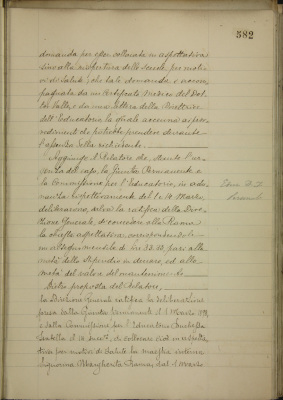 582
domanda per esser collocata in aspettativa
sino alla riapertura delle scuole, per moti-
vi di salute; che tale domanda è accom-
pagnata da un certificato medico del Dot-
tor e da una lettera della Direttrice
dell'Educatorio, la quale accenna ai prov-
vedimenti che potrebbe prendere durante
l'assenza della richiedente.
Aggiunge il Relatore che, stante l'ur-
genza del caso, la Giunta Permanente e
la Commissione per l'Educatorio, in adu-
nanza rispettivamente del 1 e 14 Marzo,
deliberarono, salvo la ratifica della Dire-
zione Generale, di concedere alla
la chiesta aspettativa, corrispondendole
un assegno mensile di lire 33.33, pari alla
metà dello stipendio in denaro, ed alla
metà del valore del mantenimento.
Dietro proposta del Relatore,
la Direzione Generale ratifica la deliberazione
presa dalla Giunta Permanente il 1 Marzo
e dalla Commissione per l'Educatorio
il 14 di collocare cioè in aspetta-
tiva per motivi di salute la maestra interna
Signorina Margherita dal 1 Marzo